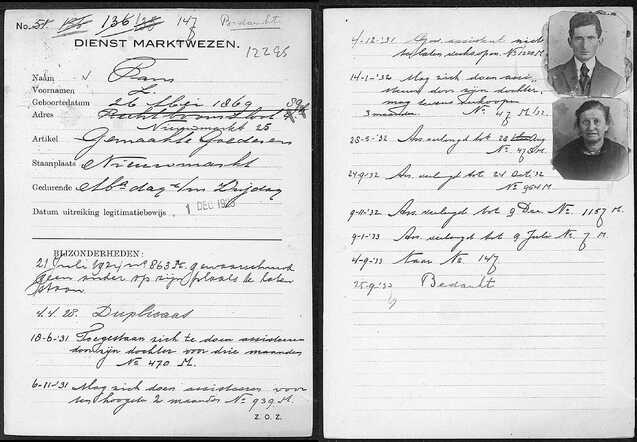 No. 51. 136 147 Bedankt
DIENST MARKTWEZEN.
12295
Naam Rans
Voornamen L.
Geboortedatum 26 Mei 1869
Adres
Nieuwmarkt 25
Artikel Gemaakte Goederen
Staanplaats Nieuwmarkt
Gedurende Ma dag t/m Vrijdag
Datum uitreiking legitimatiebewijs, 1 DEC 19
BIJZONDERHEDEN:
21 Juli 1921 No 863 M. gewaarschuwd
geen ander op zijn plaats te laten
staan
4.4.28. Duplicaat
18-6-'31 Toegestaan zich te doen assisteeren
door zijn dochter voor drie maanden
No 470 M.
6-11-'31 Mag zich doen assisteeren voor
ten hoogste 2 maanden No 939 M.
Z.O.Z.
4-12-'31 assistent niet
te laten verkoopen. No
14-1-'32 Mag zich doen assi-
steeren door zijn dochter,
mag tevens verkoopen
3 maanden No 47 M/32
28-5-'32 Ass. verlengd tot 28 Aug
No 478 M.
24-9-'32 Ass. verlengd tot 24 Oct. '32
No 964 M.
9-11-'32 Ass. verlengd tot 9 Dec. No 1157 M.
9-1-'33 Ass. verlengd tot 9 Juli No 7 M.
4-9-'33 Naar No 147
25-9-'33 Bedankt